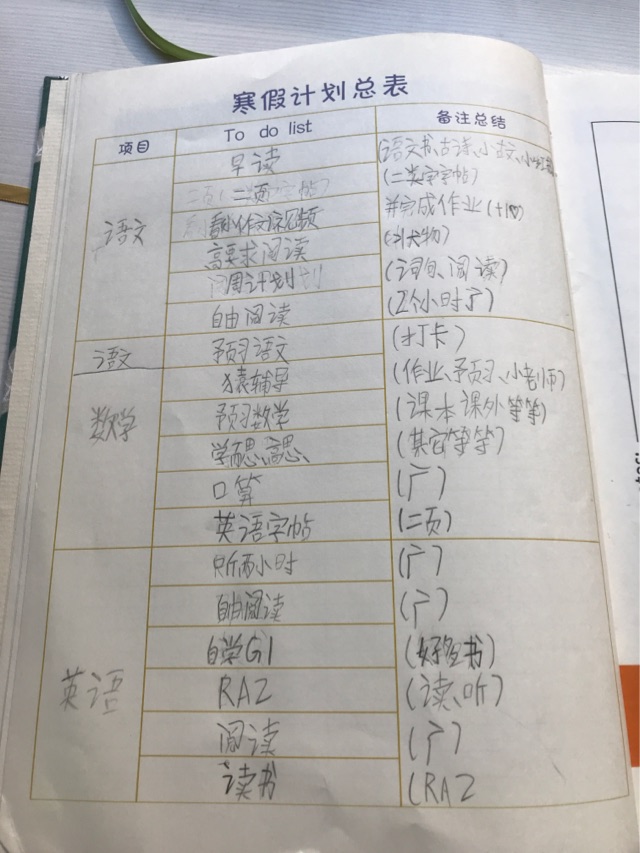 寒假计划总表
项目 To do list 备注总结
语文 早读 (语文书、古诗、小古文、
二页 (二类字字帖)
看小作文 视频 并完成作业
高要求阅读
周计划 (词句、阅读)
自由阅读 (2个小时
语文 预习语文 (打卡)
数学 猿辅导 (作业、预习、小老师)
预习数学 (课本课外等等)
学而思、高思、 (其它等等)
口算
英语字帖 (二页)
英语 听两小时
自由阅读
自学G1 (好多书)
RAZ (读、听)
阅读
读书 (RAZ